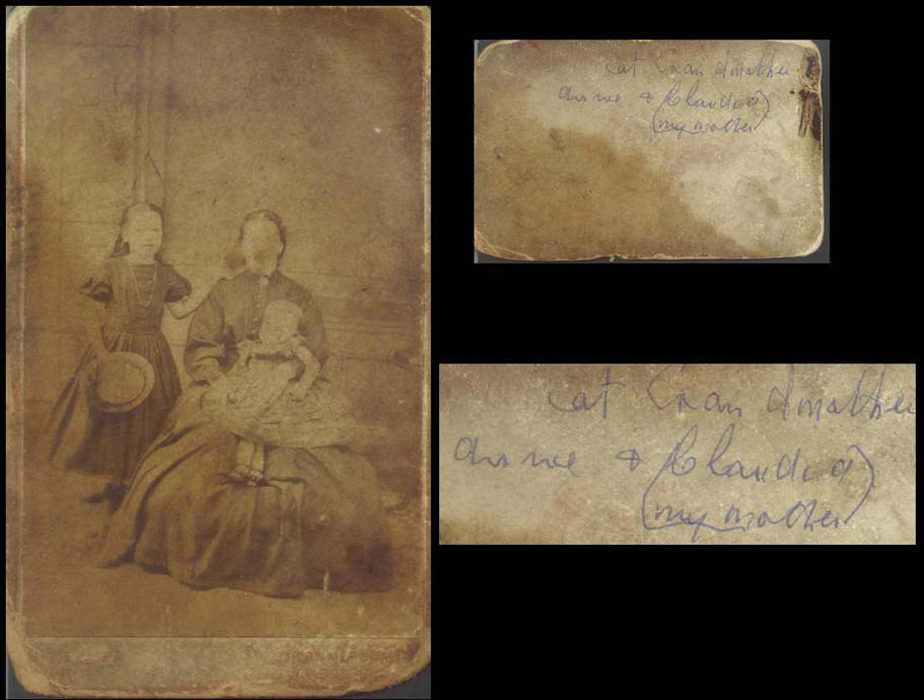 Grandmother
Annie & Claudia
(my mother)
Grandmother
Annie & Claudia
(my mother)